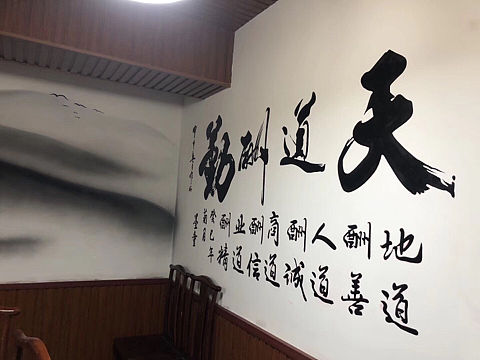 天道酬勤
地道
酬善
人道
酬诚
商道
酬信
业道
酬精
癸巳年
菊月